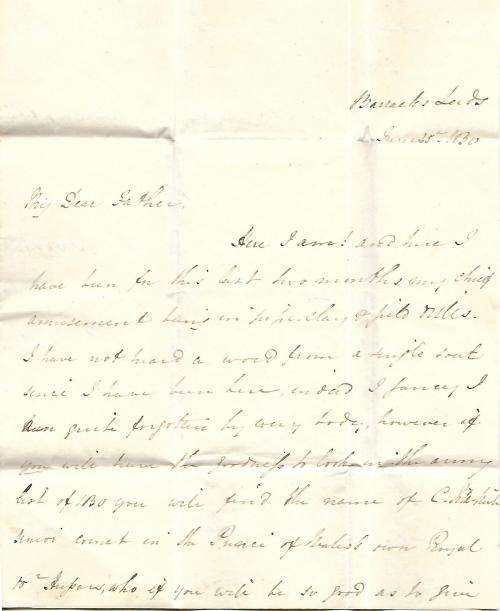 Barracks Leeds
June 15th. 1830
My Dear Father,
Here I am! and here I
have been for this last two months my chief
amusement being in pipe-clay & field drills.
I have not heard a word from a single soul
since I have been here, indeed I fancy I
am quite forgotten by every body, however if
you will have the goodness to look in the army
list of 1830 you will find the name of C.
junior cornet in the Prince of Wales's own Royal
Rt. Hussars, who if you will be so good as to give